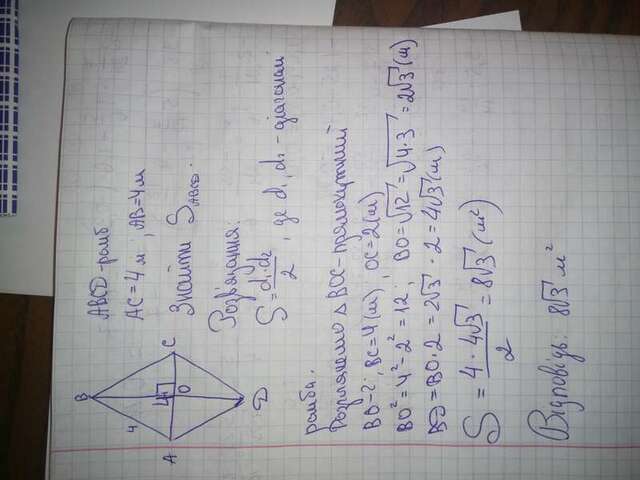 ABCD-ромб
AC=4м; AB=4м
Знайти S ABCD.
B
4
A
C
O
D
Розв'язання:
S=d₁·d₂/2, де d₁,d₂-діагоналі
ромба.
Розглянемо △BOC-прямокутний
BO-?; BC=4(м), OC=2(м)
BO²=4²-2²=12; BO=√12=√4·3=2√3(м)
BD=BO·2=2√3·2=4√3(м)
S=4·4√3/2=8√3(м²)
Відповідь: 8√3 м²